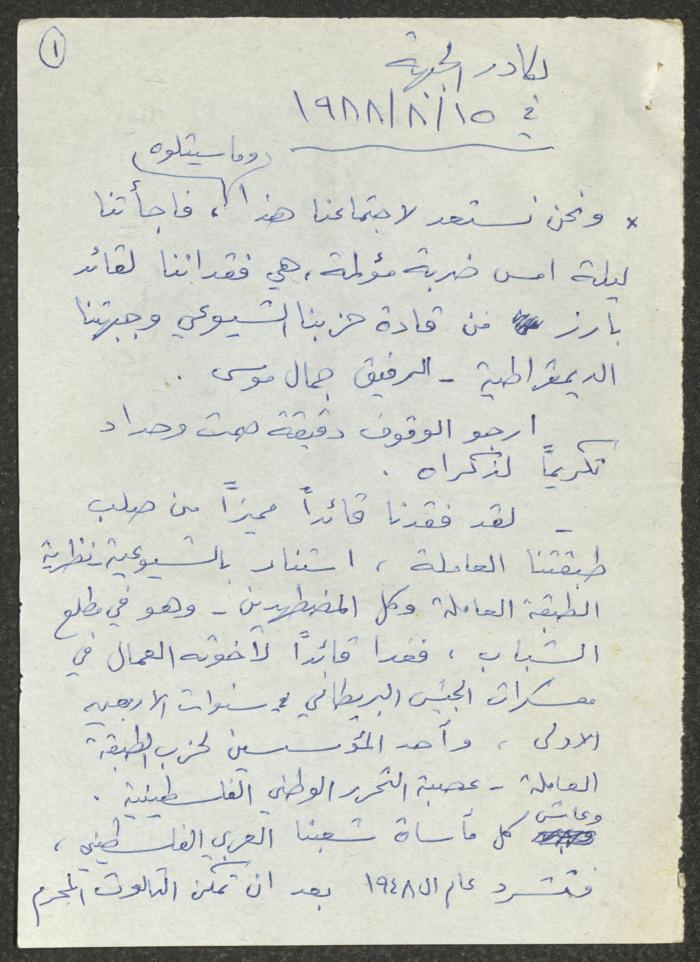 ١
لكادر الجبهة
في ١٥/٨/١٩٨٨
(وما سيتلوه)
× ونحن نستعد لاجتماعنا هذا، فاجأتنا
ليلة امس ضربة مؤلمة، هي فقداننا لقائد
بارز من قادة حزبنا الشيوعي وجبهتنا
الديمقراطية - الرفيق جمال موسى.
ارجو الوقوف دقيقة صمت وحداد
تكريماً لذكراه.
- لقد فقدنا قائداً مميزاً من صلب
طبقتنا العاملة، استنار بالشيوعية - نظرية
الطبقة العاملة وكل المضطهدين - وهو في مطلع
الشباب، فغدا قائداً لأخوته العمال في
معسكرات الجيش البريطاني في سنوات الاربعين
الاولى، وأحد المؤسسين لحزب الطبقة
العاملة - عصبة التحرر الوطني الفلسطينية.
وعايش كل مأساة شعبنا العربي الفلسطيني،
فتشرد عام ال ١٩٤٨ بعد ان تمكن الثالوث المجرم